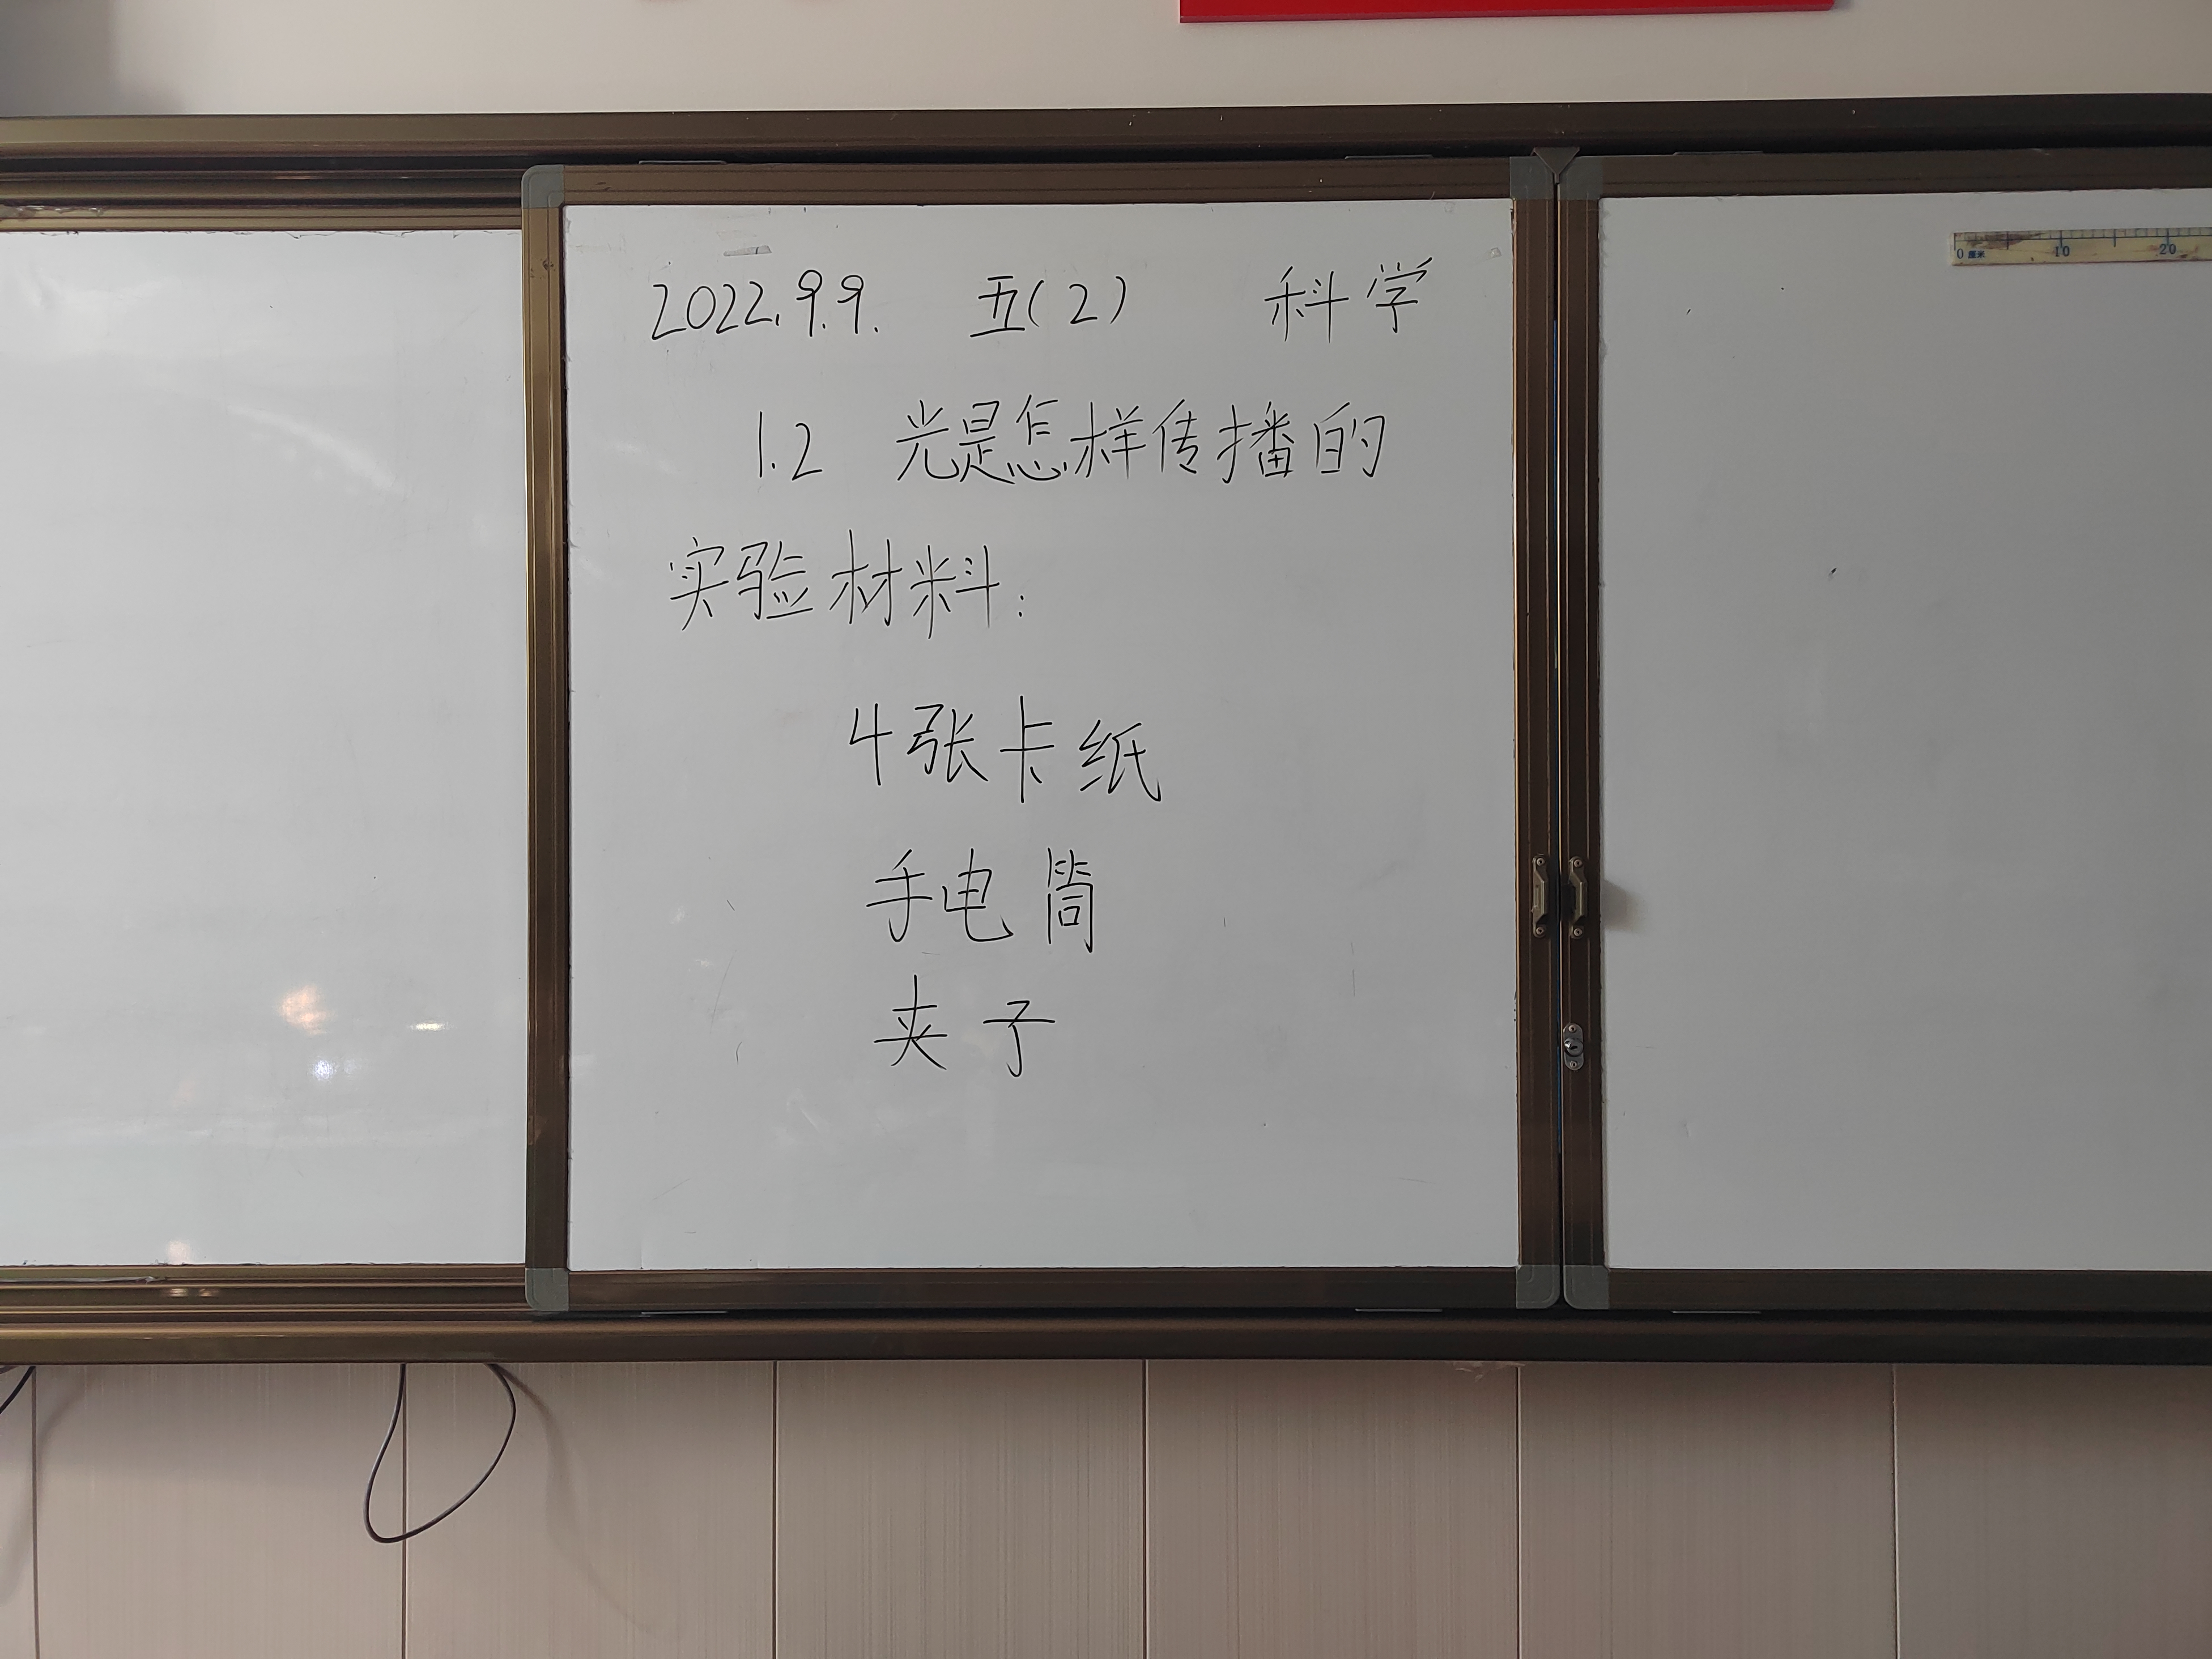 2022.9.9. 五(2) 科学
1.2 光是怎样传播的
实验材料:
4张卡纸
手电筒
夹子
0厘米 10 20